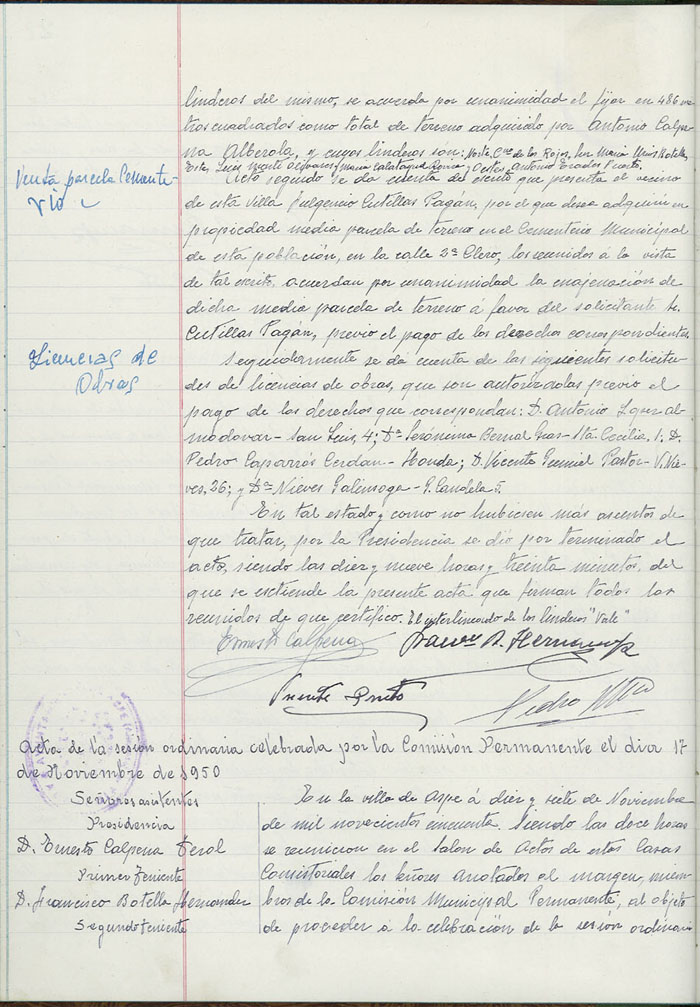 linderos del mismo, se acuerda por unanimidad el fijar en 486 me-
tros cuadrados como total de terreno adquirido por Antonio Calpe-
na Alberola, y cuyos linderos son: Norte, Cno de los Rojas, Sur María Mira Botella,
Este, Luis y María Calatayud y Oeste, Antonio
Venta parcela Cemente-
rio
Acto seguido se da cuenta del escrito que presenta el vecino
de esta villa Fulgencio Cutillas Pagán, por el que desea adquirir en
propiedad media parcela de terreno en el Cementerio Municipal
de esta población, en la calle 2ª Clero, los reunidos á la vista
de tal escrito, acuerdan por unanimidad la enajenación de
dicha media parcela de terreno á favor del solicitante Sr.
Cutillas Pagán, previo el pago de los derechos correspondientes.
Licencias de
Obras
Seguidamente se da cuenta de las siguientes solicitu-
des de licencias de obras, que son autorizadas previo el
pago de los derechos que correspondan: D. Antonio Lopez Al-
modovar - San Luis, 4; Dª Gerónima Bernal - Sta. Cecilia, 1; D.
Pedro Caparrós Cerdan - Honda; D. Vicente Gumiel Pastor - V. Nie-
ves, 26; y Dª Nieves Galinsoga - G. Candela 5.
En tal estado y como no hubiesen más asuntos de
que tratar, por la Presidencia se dió por terminado el
acto, siendo las diez y nueve horas y treinta minutos, del
que se extiende la presente acta que firman todos los
reunidos de que certifico. El interlineado de los linderos "Vale"
Ernesto Calpena
Vicente Prieto
Pedro
Acta de la sesión ordinaria celebrada por la Comisión Permanente el día 17
de Noviembre de 1950
Señores asistentes
Presidencia
D. Ernesto Calpena Terol
Primer Teniente
D. Francisco Botella Hernandez
Segundo Teniente
En la villa de Aspe á diez y siete de Noviembre
de mil novecientos cincuenta. Siendo las doce horas
se reunieron en el Salon de Actos de estas Casas
Consistoriales los señores anotados al margen, miem-
bros de la Comisión Municipal Permanente, al objeto
de proceder á la celebración de la sesión ordinaria